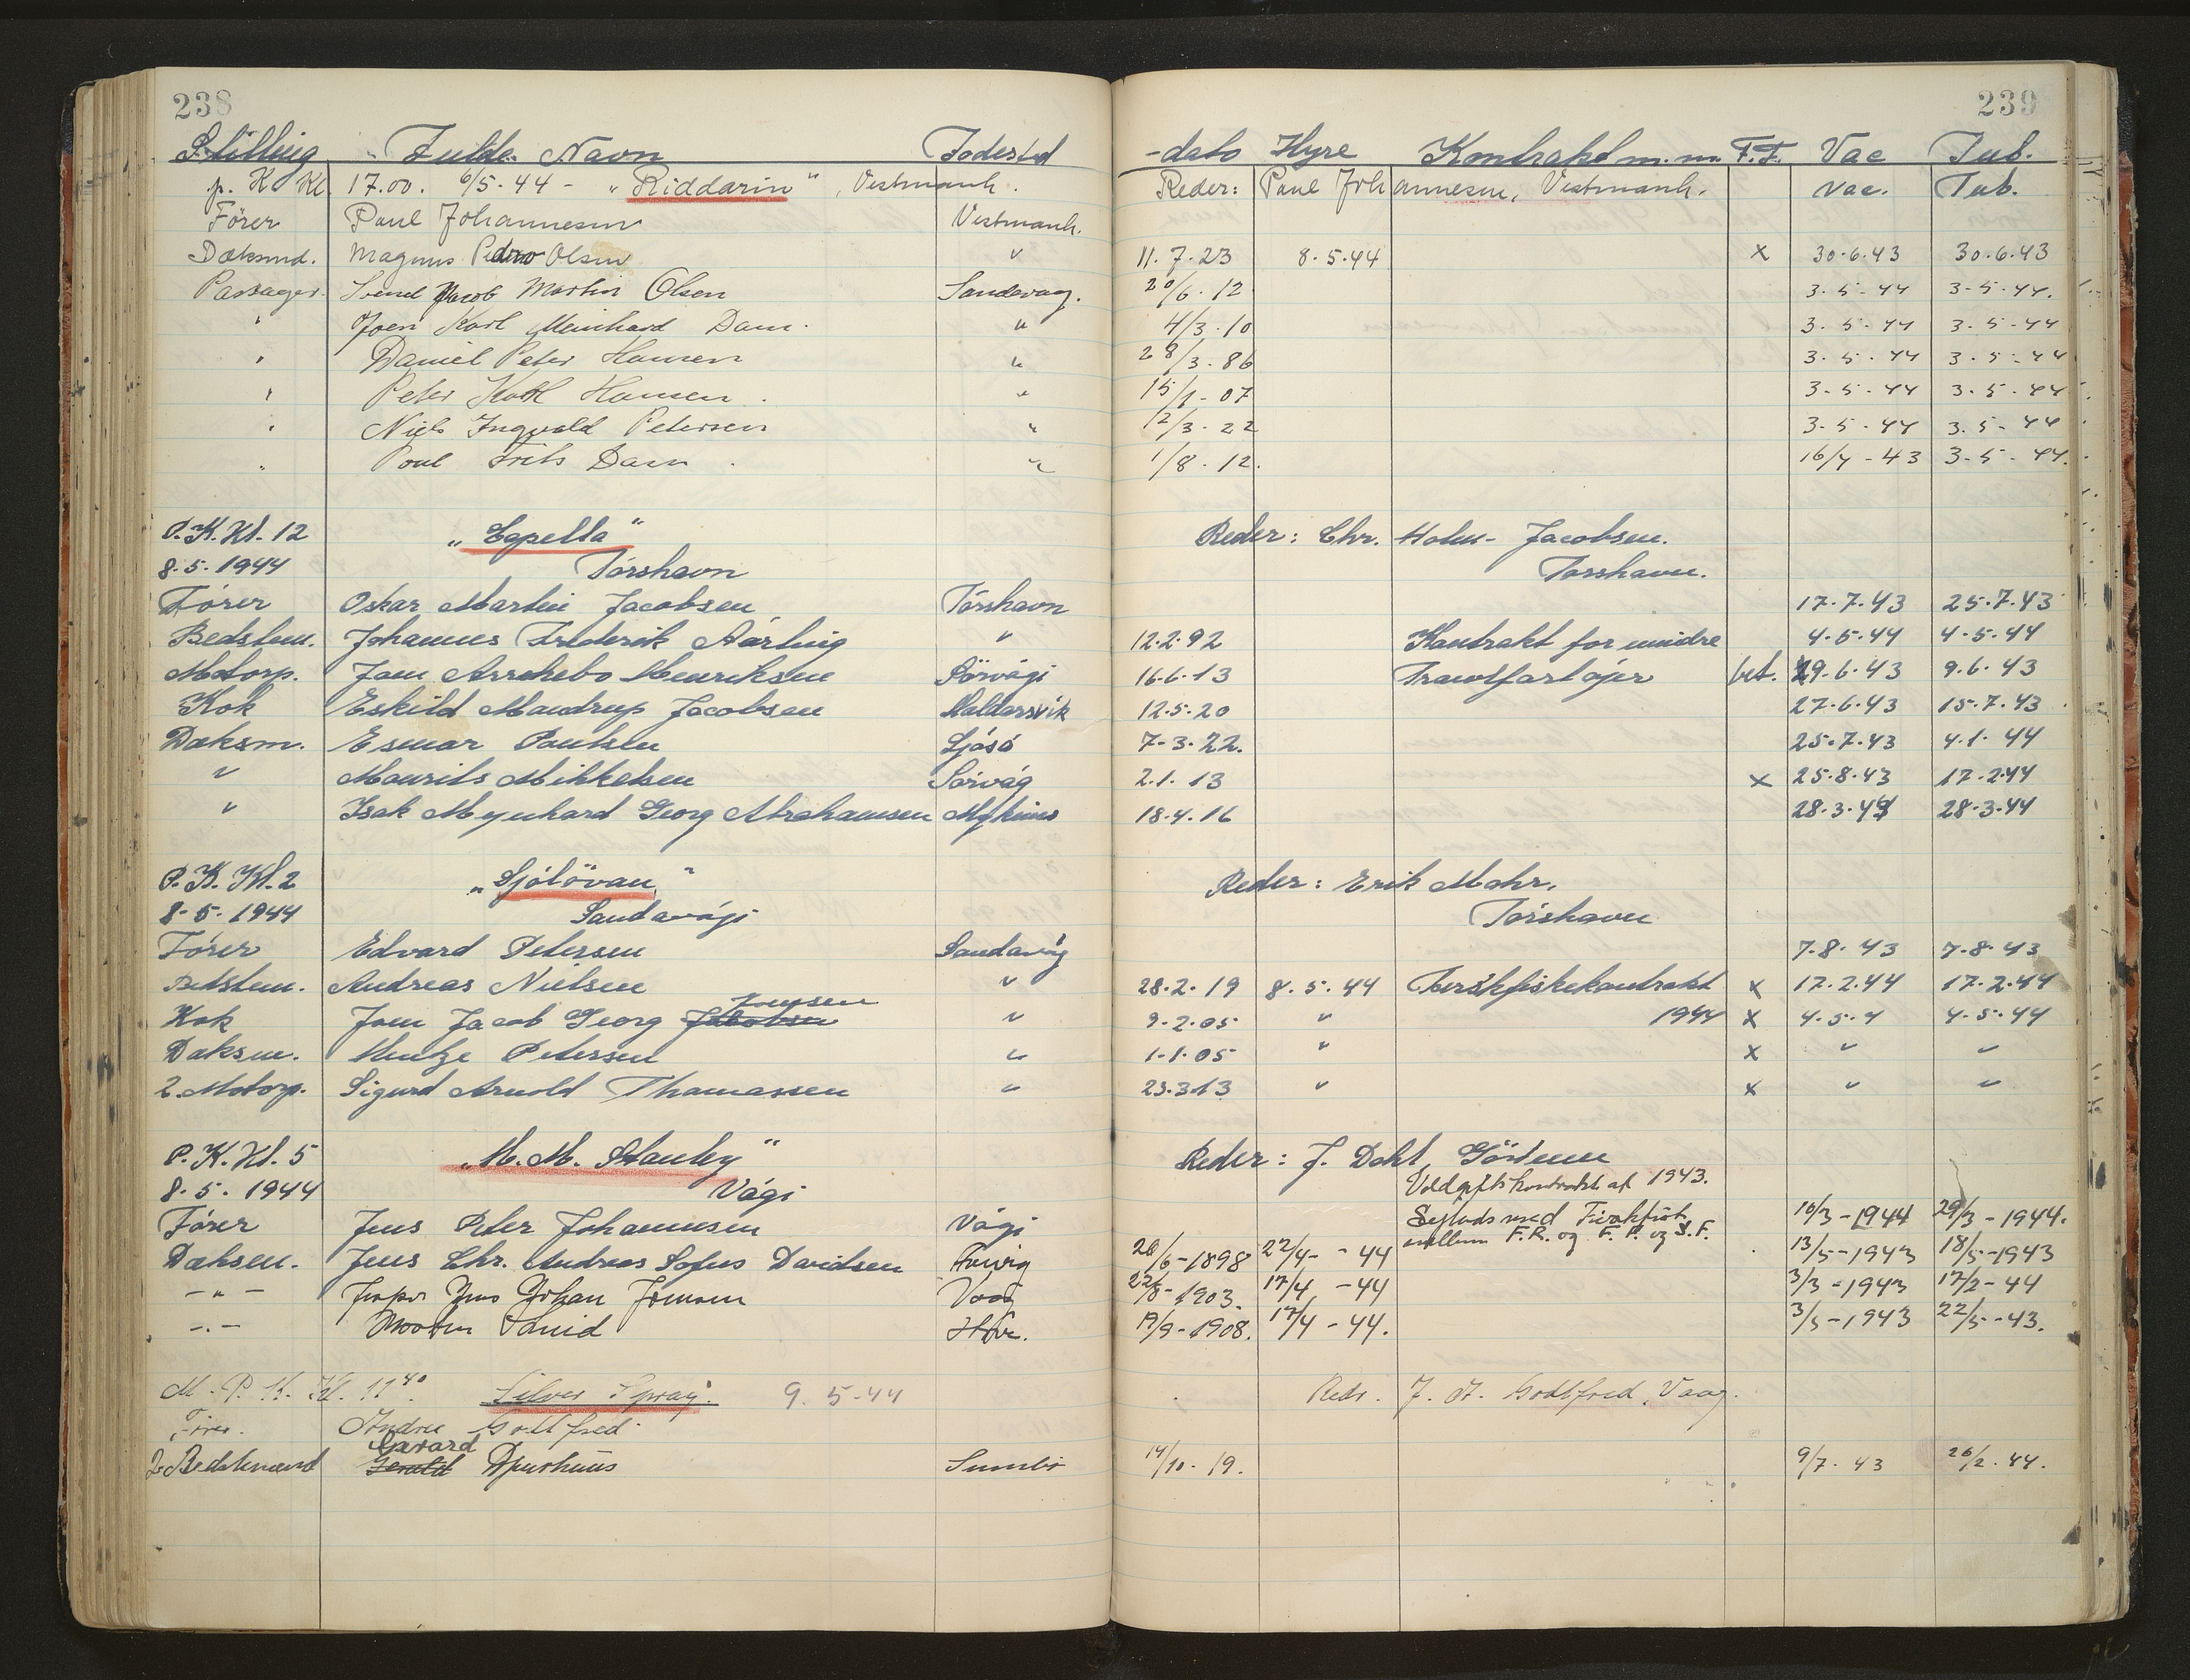 238
239
Stilling Fulde Navn Fødested -dato Hyre Kontrakt m.m. F.T. Vac Tub.
p. K Kl 17.00. 6/5-44 - "Riddarin", Vestmanh. Reder: Paul Johannesen, Vestmanh. Vac. Tub.
Förer Paul Johannesen Vestmanh.
Dæksmd. Magnus Olsen " 11.7.23 8.5.44 x 30.6.43 30.6.43
Passager Svend Jacob Martin Olsen Sandavag. 20/6.12 3-5-44 3-5-44.
" Joen Karl Meinhard Dam. " 4/3.10 3.5.44 3.5.44
" Daniel Peter Hansen " 28/3.86 3.5.44 3.5.44
" Peter Karl Hansen. " 15/1-07 3-5-44 3.5.44
" Niels Ingvald Petersen " 12/3.22 3-5-44 3.5-44
" Poul Frits Dam. " 1/8.12. 16/4-43 3-5-44.
P.K.Kl.12 "Capella" Reder: Chr. Holm-Jacobsen.
8.5.1944 Tórshavn Torshavn.
Förer Oskar Martin Jacobsen Tórshavn 17.7.43 25.7.43
Bedstem. Johannes Frederik Aarting " 12.2.92 Kontrakt for mindre 4.5.44 4.5.44
Motorp. Joen Arrhebo Henriksen Sörvági 16.6.13 Trawlfartöjer bet. 19.6.43 9.6.43
Kok Eskild Maudrup Jacobsen Haldarsvik 12.5.20 27.6.43 15.7.43
Dæksm. Esmar Poulsen Ljósá 7-3.22. 25.7.43 4.1.44
" Maurits Mikkelsen Sörvág 2.1.13 x 25.8.43 17.2.44
" Isak Meynhard Georg Abrahamsen Mykines 18.4.16 28.3.44 28.3.44
P.K.Kl.2 "Sjólövan" Reder: Erik Mohr.
8-5.1944 Sandavági Tórshavn
Förer Edvard Petersen Sandavág 7.8.43 7.8.43
Bedstem. Andreas Nielsen " 28.2.19 8.5.44 Ferskfiskekontrakt x 17.2.44 17.2.44
Kok Joen Jacob Georg Jacobsen Joensen " 9.2.05 " 1944 x 4.5.4 4.5.44
Dæksm. Hentze Petersen " 1-1.05 " x " "
2. Motorp. Sigurd Arnold Thomassen " 23.3.13 " x " "
P.K.Kl.5 "M.M. Stanley" Reder: J. Dahl,
8.5.1944 Vági Voldgiftskontrakt af 1943.
Förer Jens Peter Johannesen Vági Sejlads med 16/3-1944 29/3-1944.
mellem F.R. og F.P. og S.F.
Dæksm. Jens Chr. Andreas Sofus Davidsen 26/6-1898 22/4--44 13/5-1943 18/5-1943
-"- Jens Johan Joensen Vaag 22/8-1903. 17/4-44 3/3-1943 17/2-44
-"- David 19/9-1908. 17/4-44. 3/5-1943 22/5-43.
M. P. K. Kl. 11 40 "Silver Spray". 9. 5-44 Redr. J. H. Godtfred, Vaag.
Förer. Godtfred
Gerald Gerard
Bedstemand Djurhuus Sumbö 14/10.19. 9/7.43 26/2.44.